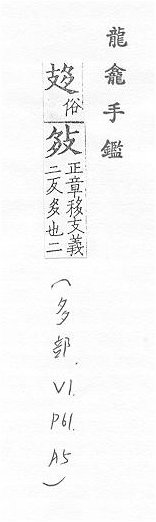 龍龕手鑑
俗
正章移支義
二反多也二
(多部. V1. P61. A5)